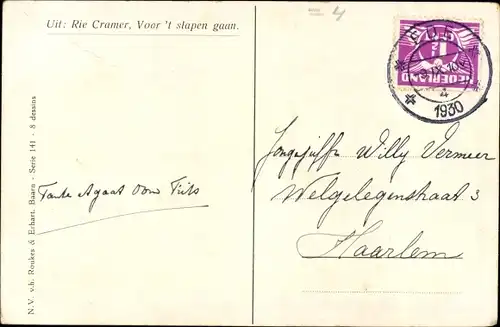 Uit: Rie Cramer, Voor 't slapen gaan.
4
EDE
1930
NEDERLAND
Jongejuffr Willy Vermeer
Welgelegenstraat 3
Haarlem
Tante Agaat Oom Frits
N.V. v.h. Roukes & Erhart, Baarn - Serie 141 - 8 dessins